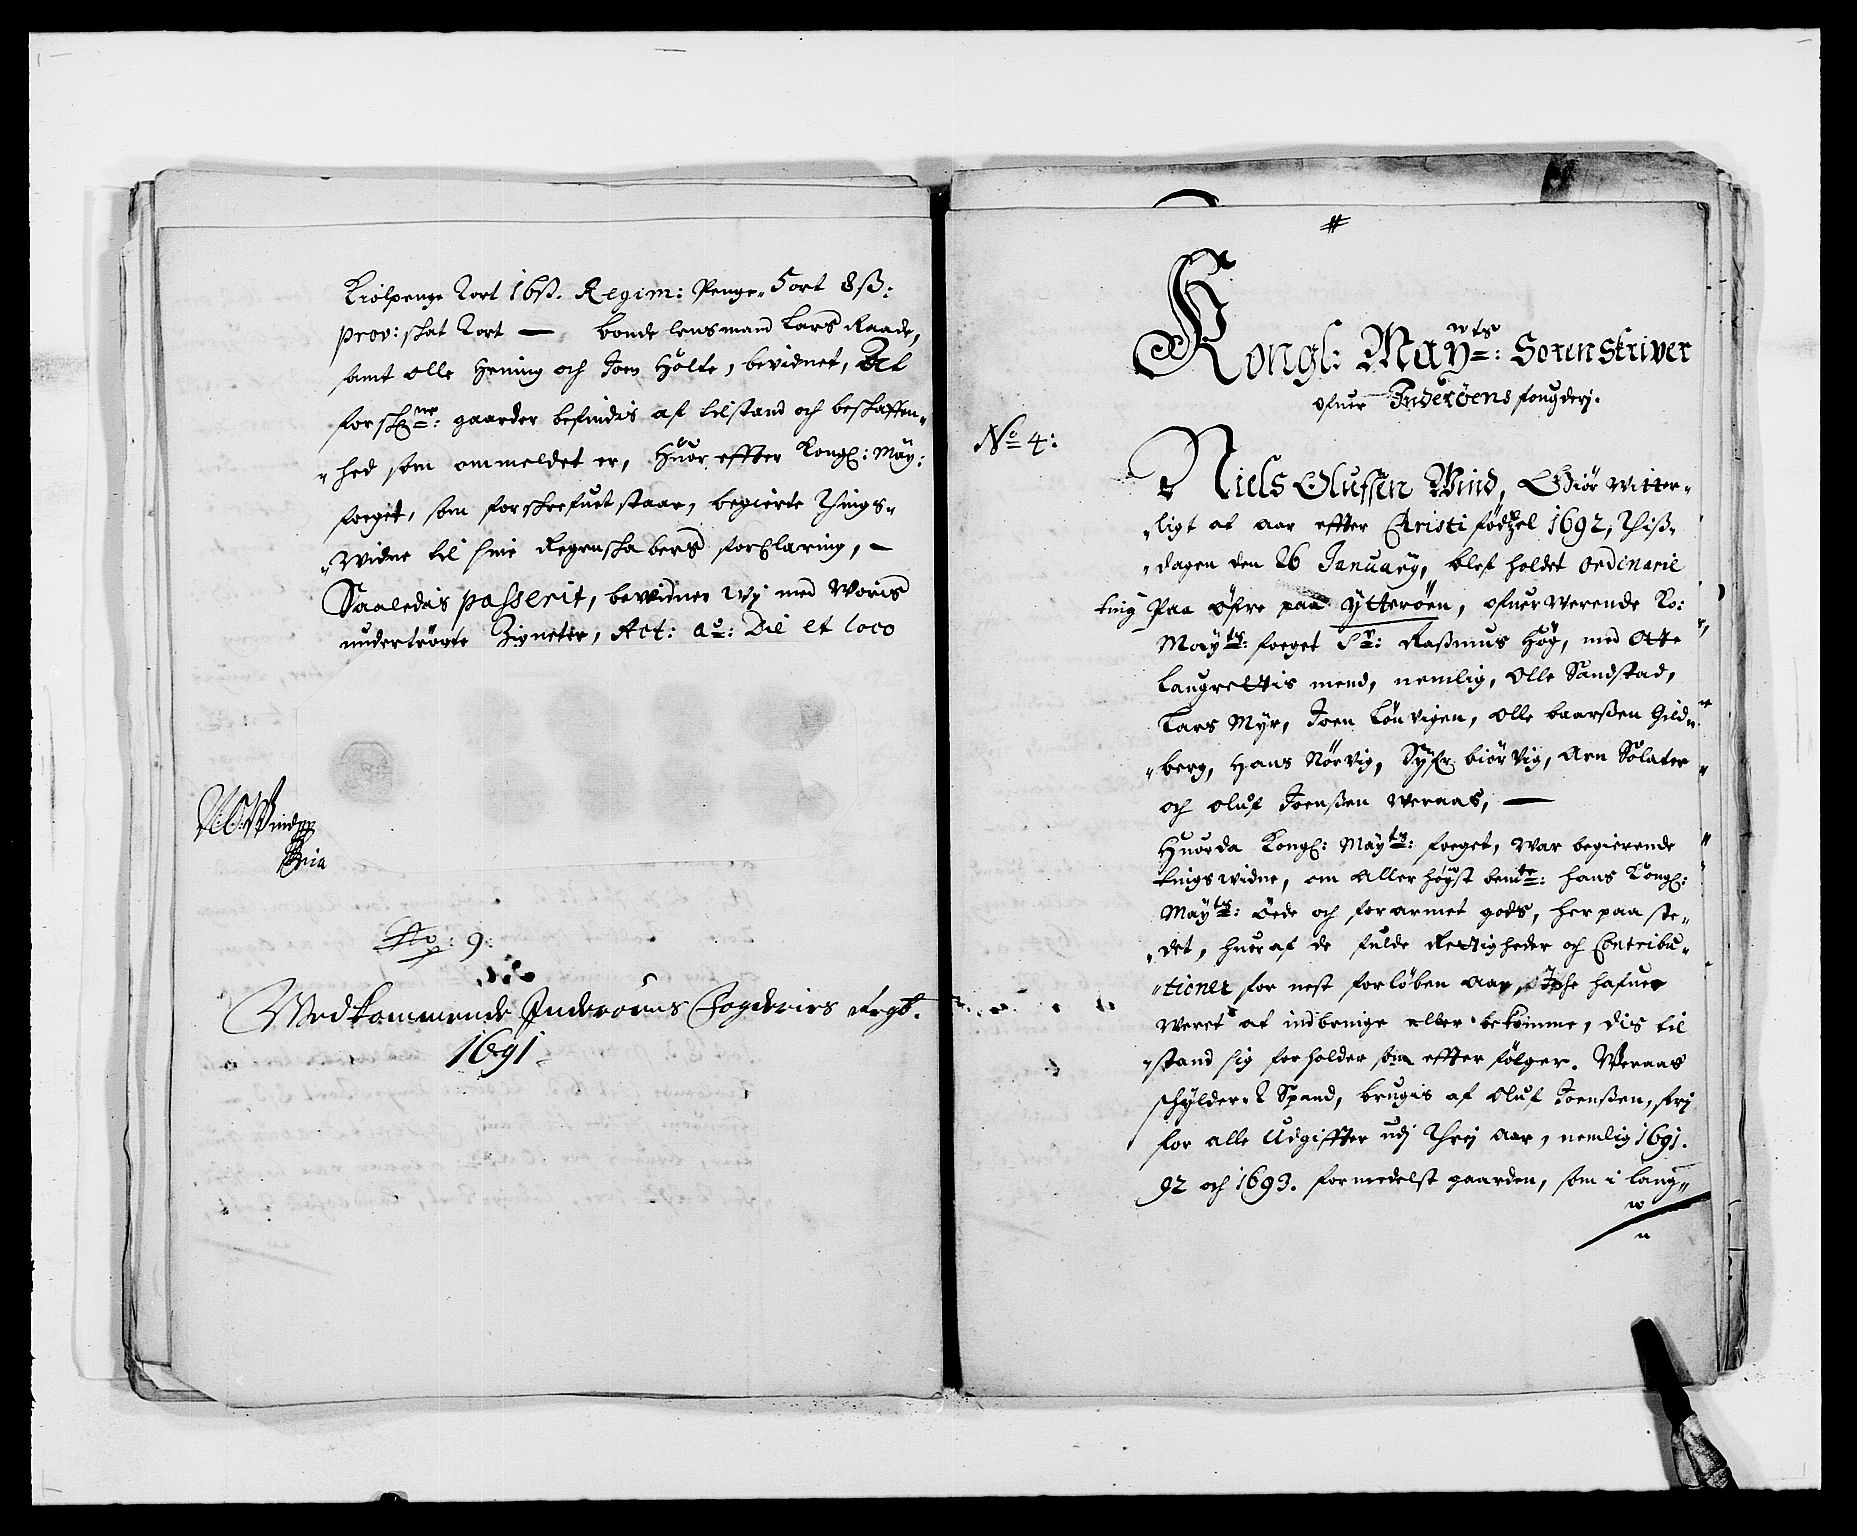 Kiølpenge 2ort 16ß. Regim: Penge 5ort 8ß:
prov: skat 2ort — bonde lensmand Lars Raade,
samt olle Hening och Joen Hølte, bevidnet, At
forsch&ne: gaarder befindis af tilstand och beskaffen„
„hed som ommeldet er, Huor effter Kongl: May:
foeget, som forskrefuet staar, begierte Things„
„widne til sine Regenskabers forClaring, —
Saaledis passerit, bevidner wj med Woris
undertrögte Zigneter, Act: aō: Die et loco
N:O:Wind
Ppia
No: 9:
Vedkommende Inderöens Fogderies Regb.
1691
#
Kongl: Mayts: Sorenskriver
ofuer Inderöens fougderj.
No 4:
Niels Olufsen Wind, Giör Witter„
„ligt at aar effter Christi födzel 1692, Thiß„
„dagen den 26 January, blef holdet ordinarie
ting Paa Öfre paa Ytteröen, ofuerwerende Ko:
Mayts: foeget Sr: Raßmus Høg, med Otte
Laugrettis mend, nemlig, Olle Sandstad,
Lars Myr, Joen Lönvigen, Olle baarßen Gild„
„berg, Hans Nörvig, Syfr biörvig, Arn Solater
och Oluf Joenßen Weraas, —
Huorda Kongl: Mayts: foeget, War begierende
tingswidne, om Allerhøyst bemte: hans Kongl:
Mayts: öede och forarmet gods, her paa ste„
„det, huoraf de fulde Rettigheder och Contribu„
„tioner for nest forløben Aar, Iche hafuer
Weret at indbringe eller bekomme, dis til
„stand sig forholder som effter følger. Weraas
schylder 2 Spand, brugis af Oluf Joenßen, fri
for alle Udgiffter udj Threj Aar, nemlig 1691.
92 och 1693. formedelst gaarden, som i lang„
w
n